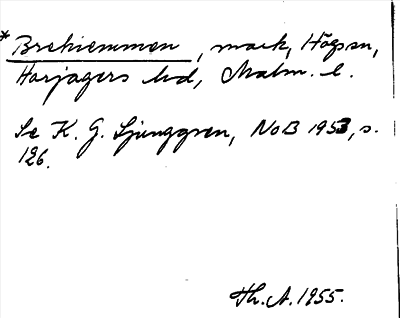 *Brehiemmen, mark, Högs sn,
Harjagers hd, Malm. l.
Se K. G. Ljunggren, NoB 1953, s.
126.
Th. A. 1955.